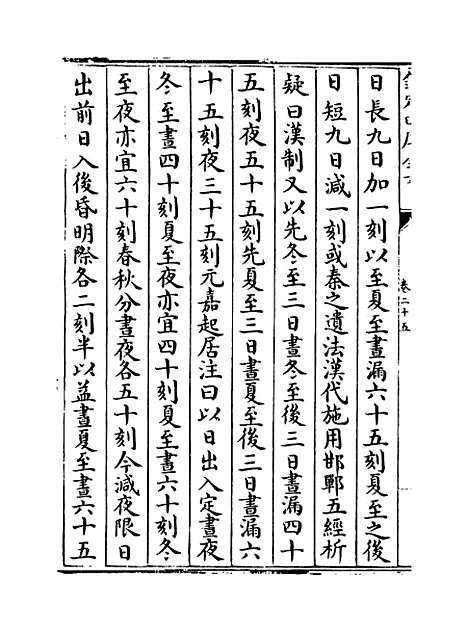 日長九日加一刻以至夏至晝漏六十五刻夏至之後
日短九日減一刻或秦之遺法漢代施用邯鄲五經析
疑曰漢制又以先冬至三日晝冬至後三日晝漏四十
五刻夜五十五刻先夏至三日晝夏至後三日晝漏六
十五刻夜三十五刻元嘉起居注曰以日出入定晝夜
冬至晝四十刻夏至夜亦宜四十刻夏至晝六十刻冬
至夜亦宜六十刻春秋分晝夜各五十刻今減夜限日
出前日入後昏明際各二刻半以益晝夏至晝六十五
卷二十五